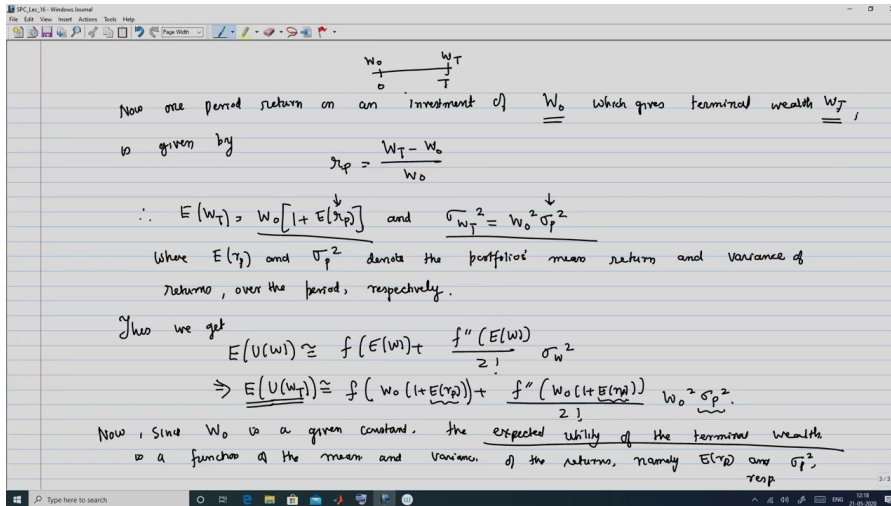 SPC_Lec_16 - Windows Journal
File Edit View Insert Actions Tools Help
Page Width
W₀ W_T
0 T
Now one period return on an investment of W₀ which gives terminal wealth W_T,
is given by
r_p = (W_T - W₀) / W₀
∴ E(W_T) = W₀[1 + E(r_p)] and σ_{W_T}² = W₀² σ_p²
where E(r_p) and σ_p² denote the portfolios' mean return and variance of
returns, over the period, respectively.
Thus we get
E(U(W)) ≅ f(E(W)) + f''(E(W))/2! σ_W²
⇒ E(U(W_T)) ≅ f(W₀(1+E(r_p))) + f''(W₀(1+E(r_p)))/2! W₀² σ_p².
Now, since W₀ is a given constant. the expected utility of the terminal wealth
is a function of the mean and variance of the returns, namely E(r_p) and σ_p²,
resp.
3/3
Type here to search
ENG
12:18
21-05-2020